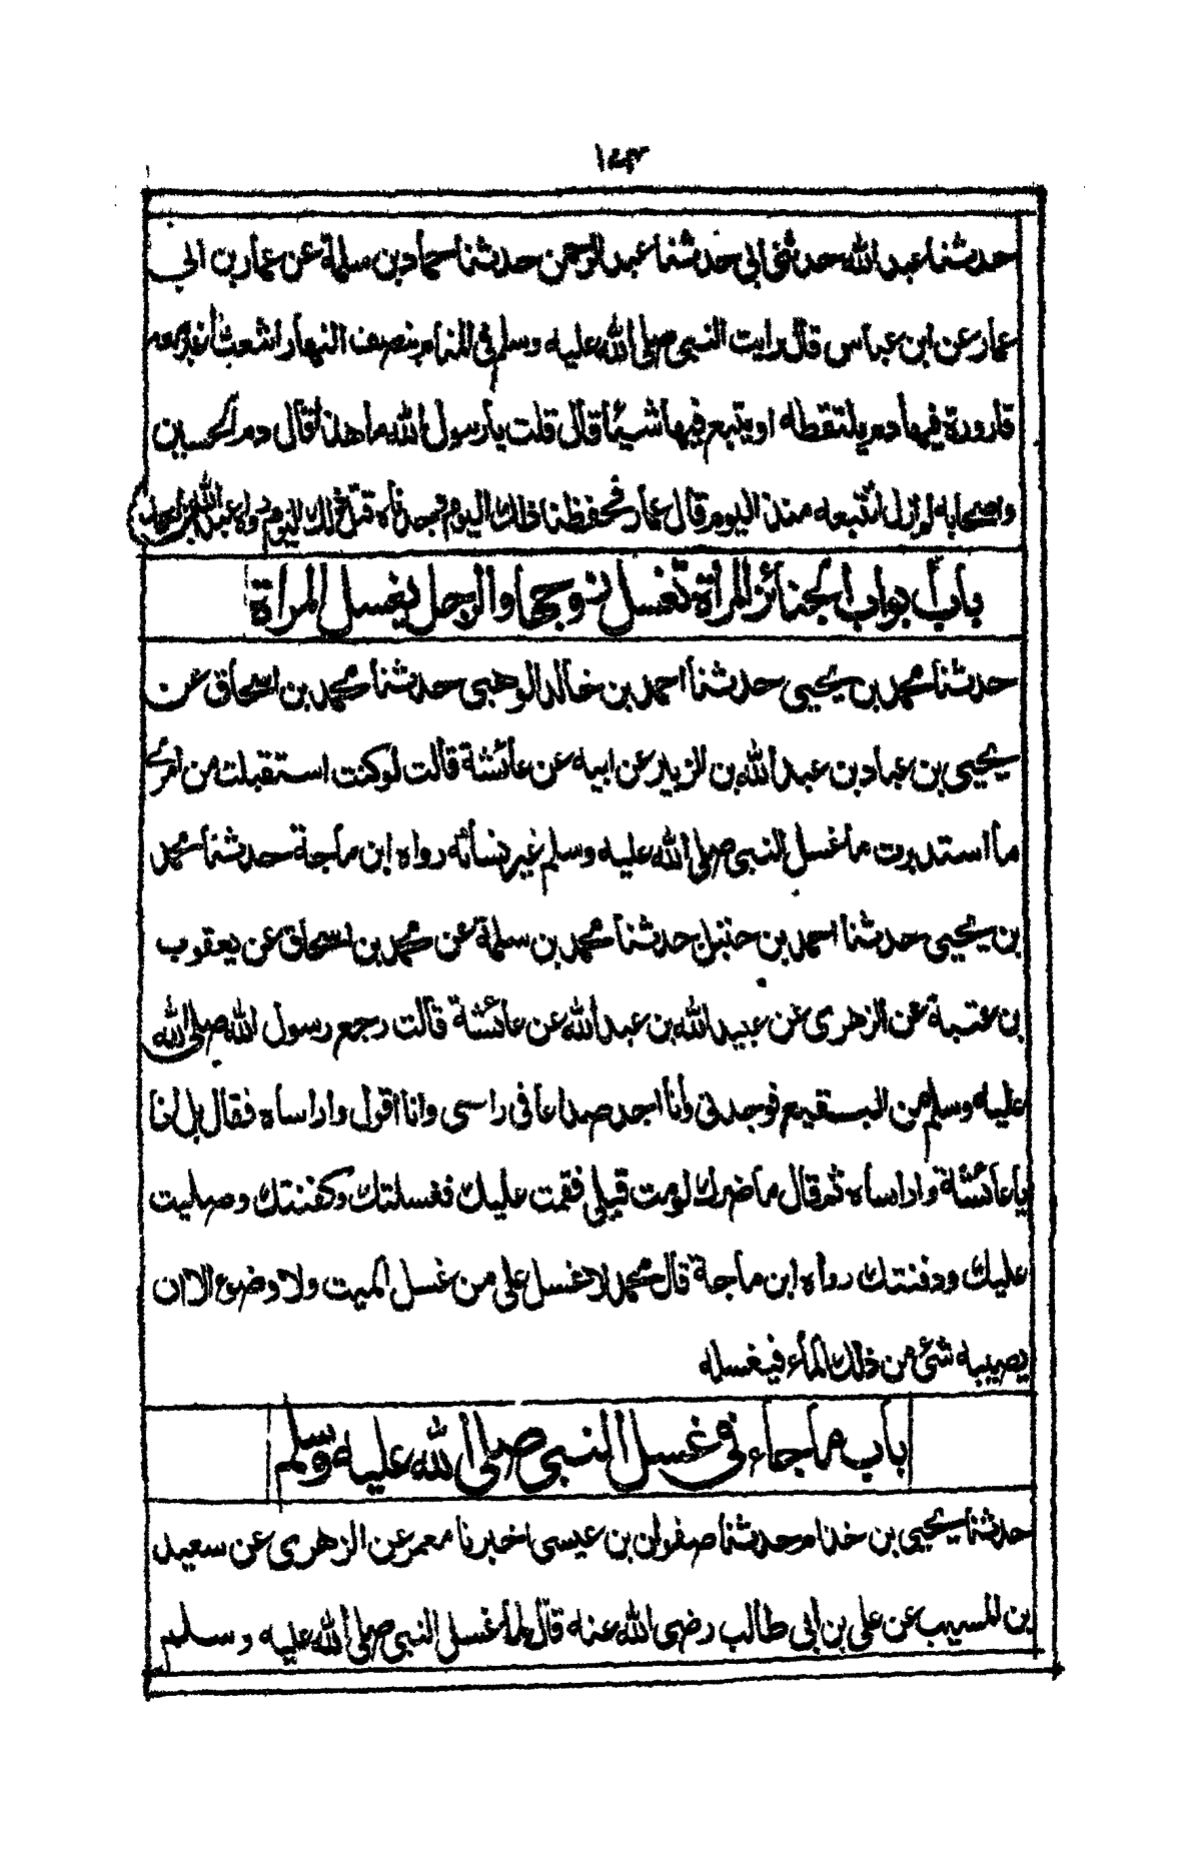 ١٤٣
حدثنا عبد الله حدثني ابي حدثنا عبد الرحمن حدثنا حماد بن سلمة عن عمار بن ابي
عمار عن ابن عباس قال رايت النبي صلى الله عليه وسلم في المنام بنصف النهار اشعث اغبر معه
قارورة فيها دم يلتقطه او يتبع فيها شيئا قال قلت يا رسول الله ما هذا قال دم الحسين
واصحابه لم ازل اتتبعه منذ اليوم قال عمار فحفظنا ذلك اليوم فوجدناه قتل ذلك اليوم رواه عبد الله
باب ابواب الجنائز المراة تغسل زوجها والرجل يغسل المراة
حدثنا محمد بن يحيى حدثنا احمد بن خالد الوهبي حدثنا محمد بن اسحاق عن
يحيى بن عباد بن عبد الله بن الزبير عن ابيه عن عائشة قالت لو كنت استقبلت من امري
ما استدبرت ما غسل النبي صلى الله عليه وسلم غير نسائه رواه ابن ماجة حدثنا محمد
بن يحيى حدثنا احمد بن حنبل حدثنا محمد بن سلمة عن محمد بن اسحاق عن يعقوب
بن عتبة عن الزهري عن عبيد الله بن عبد الله عن عائشة قالت رجع رسول الله صلى الله
عليه وسلم من البقيع فوجدني وانا اجد صداعا في راسي وانا اقول واراساه فقال بل انا
يا عائشة واراساه ثم قال ما ضرك لو مت قبلي فقمت عليك فغسلتك وكفنتك وصليت
عليك ودفنتك رواه ابن ماجة قال محمد لا غسل على من غسل الميت ولا وضوء الا ان
يصيبه شئ من ذلك الماء فيغسله
باب ما جاء في غسل النبي صلى الله عليه وسلم
حدثنا يحيى بن خذام حدثنا صفوان بن عيسى اخبرنا معمر عن الزهري عن سعيد
بن المسيب عن علي بن ابي طالب رضى الله عنه قال لما غسل النبي صلى الله عليه وسلم